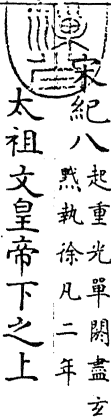 宋紀八
起重光單閼盡玄
黓執徐凡二年
太祖文皇帝下之上